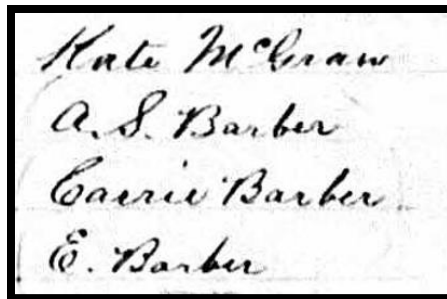 Kate McGraw
A. S. Barber
Carrie Barber
E. Barber